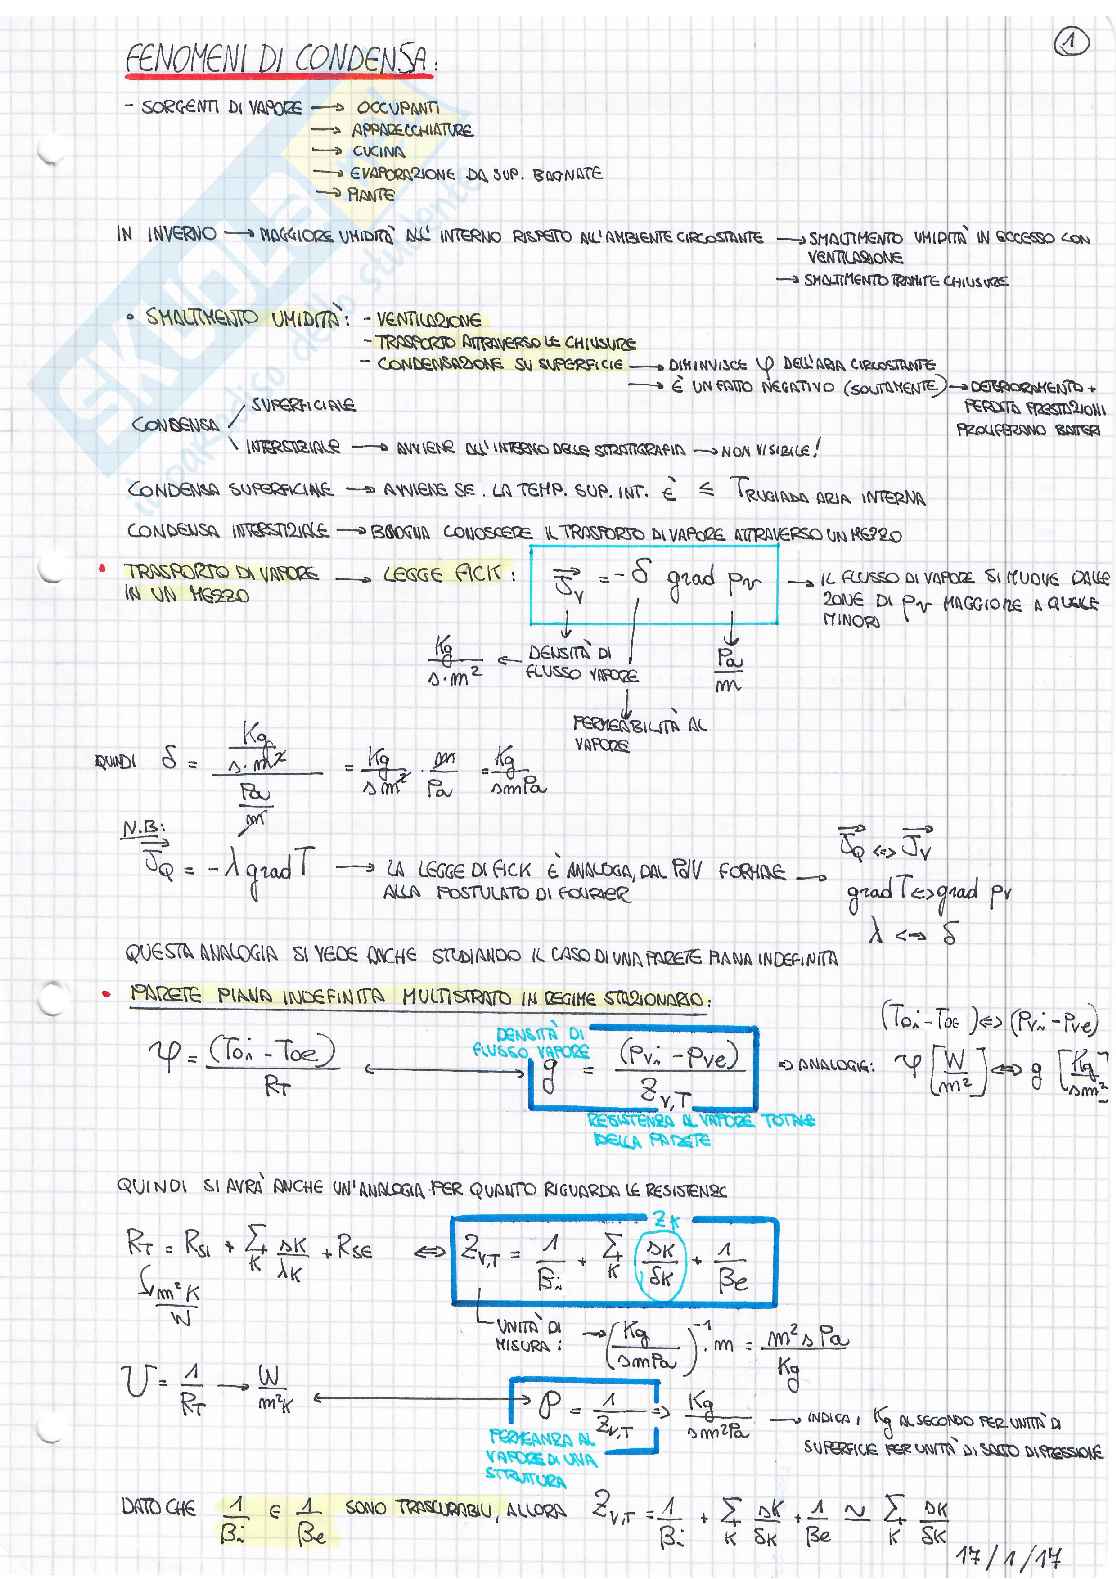 1
FENOMENI DI CONDENSA:
- SORGENTI DI VAPORE → OCCUPANTI
→ APPARECCHIATURE
→ CUCINA
→ EVAPORAZIONE DA SUP. BAGNATE
→ PIANTE
IN INVERNO → MAGGIORE UMIDITÀ ALL'INTERNO RISPETTO ALL'AMBIENTE CIRCOSTANTE → SMALTIMENTO UMIDITÀ IN ECCESSO CON
VENTILAZIONE
→ SMALTIMENTO TRAMITE CHIUSURE
• SMALTIMENTO UMIDITÀ: - VENTILAZIONE
- TRASPORTO ATTRAVERSO LE CHIUSURE
- CONDENSAZIONE SU SUPERFICIE → DIMINUISCE φ DELL'ARIA CIRCOSTANTE
→ È UN FATTO NEGATIVO (SOLITAMENTE) → DETERIORAMENTO +
PERDITA PRESTAZIONI
PROLIFERANO BATTERI
CONDENSA / SUPERFICIALE
\ INTERSTIZIALE → AVVIENE ALL'INTERNO DELLE STRATIGRAFIA → NON VISIBILE!
CONDENSA SUPERFICIALE → AVVIENE SE. LA TEMP. SUP. INT. È ≤ T RUGIADA ARIA INTERNA
CONDENSA INTERSTIZIALE → BISOGNA CONOSCERE IL TRASPORTO DI VAPORE ATTRAVERSO UN MEZZO
• TRASPORTO DI VAPORE → LEGGE FICK: J⃗v = -δ grad pv → IL FLUSSO DI VAPORE SI MUOVE DALLE
IN UN MEZZO ZONE DI pv MAGGIORE A QUELLE
MINORI
Kg/s·m² ← DENSITÀ DI FLUSSO VAPORE Pa/m
PERMEABILITÀ AL
VAPORE
QUINDI δ = (Kg/s·m²)/(Pa/m) = Kg/sm² · m/Pa = Kg/smPa
N.B:
J⃗Q = -λ grad T → LA LEGGE DI FICK È ANALOGA, DAL PdV FORMALE → J⃗Q ⇔ J⃗v
ALLA POSTULATO DI FOURIER grad T ⇔ grad pv
λ ⇔ δ
QUESTA ANALOGIA SI VEDE ANCHE STUDIANDO IL CASO DI UNA PARETE PIANA INDEFINITA
• PARETE PIANA INDEFINITA MULTISTRATO IN REGIME STAZIONARIO:
(Toi - Toe) ⇔ (Pvi - Pve)
DENSITÀ DI
FLUSSO VAPORE
φ = (Toi - Toe)/RT ↔ g = (Pvi - Pve)/Zv,T ⇒ ANALOGIE: φ [W/m²] ⇔ g [Kg/sm²]
RESISTENZA AL VAPORE TOTALE
DELLA PARETE
QUINDI SI AVRÀ ANCHE UN'ANALOGIA PER QUANTO RIGUARDA LE RESISTENZE
ZK
RT = RSI + Σ K sK/λK + RSE ⇔ Zv,T = 1/βi + Σ K sK/δK + 1/βe
m²K/W
UNITÀ DI
MISURA: → (Kg/smPa)⁻¹ · m = m²sPa/Kg
U = 1/RT → W/m²K ↔ P = 1/Zv,T ⇒ Kg/sm²Pa → INDICA I Kg AL SECONDO PER UNITÀ DI
SUPERFICIE PER UNITÀ DI SALTO DI PRESSIONE
PERMEANZA AL
VAPORE DI UNA
STRUTTURA
DATO CHE 1/βi E 1/βe SONO TRASCURABILI, ALLORA Zv,T = 1/βi + Σ K sK/δK + 1/βe ≃ Σ K sK/δK
17/1/17